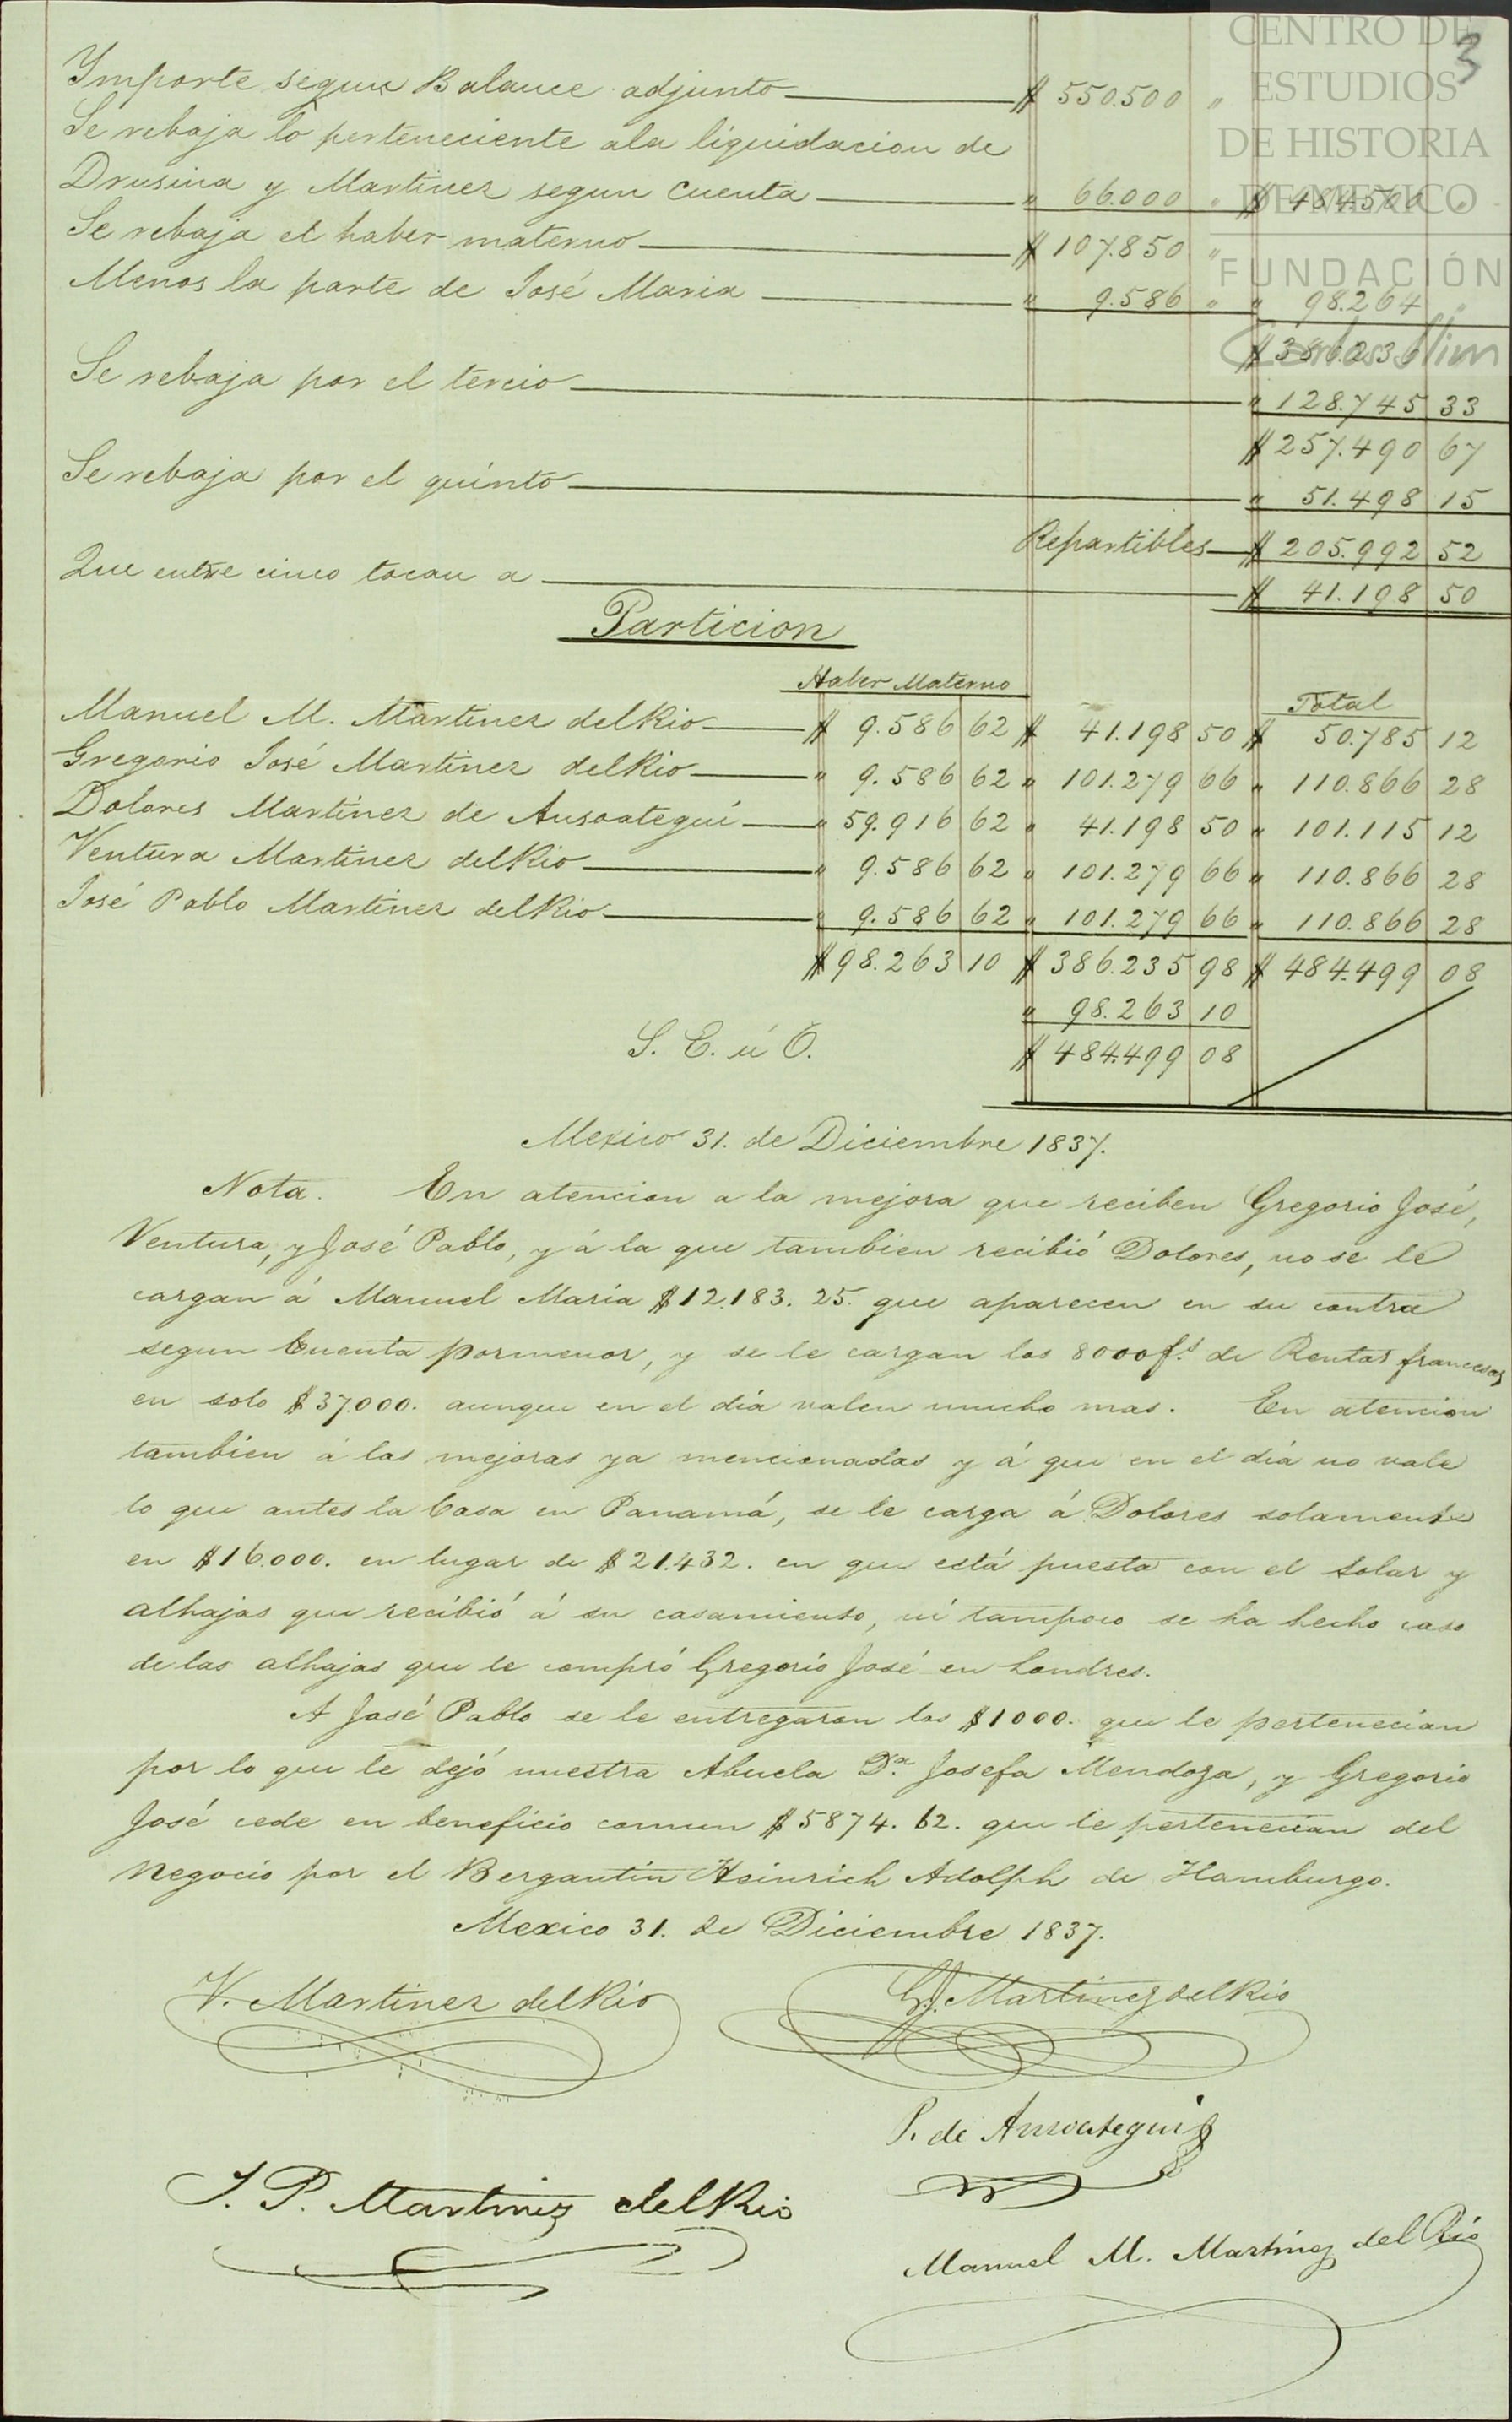 CENTRO DE
ESTUDIOS
DE HISTORIA
DE MEXICO
FUNDACIÓN
Carlos Slim
3
Ymporte segun Balance adjunto $ 550.500 "
Se rebaja lo perteneciente ala liquidacion de
Drusina y Martinez segun Cuenta " 66.000 " $ 484.500 "
Se rebaja el haber materno $ 107.850 "
Menos la parte de José Maria " 9.586 " " 98.264 "
$ 386.236
Se rebaja por el tercio " 128.745 33
$ 257.490 67
Se rebaja por el quinto " 51.498 15
Repartibles $ 205.992 52
Que entre cinco tocan a $ 41.198 50
Particion
Haber Materno Total
Manuel M. Martinez delRio $ 9.586 62 $ 41.198 50 $ 50.785 12
Gregorio José Martinez delRio " 9.586 62 " 101.279 66 " 110.866 28
Dolores Martinez de Ansoategui " 59.916 62 " 41.198 50 " 101.115 12
Ventura Martinez delRio " 9.586 62 " 101.279 66 " 110.866 28
José Pablo Martinez delRio " 9.586 62 " 101.279 66 " 110.866 28
$ 98.263 10 $ 386.235 98 $ 484.499 08
" 98.263 10
S. E. ú O. $ 484.499 08
Mexico 31. de Diciembre 1837.
Nota. En atencion a la mejora que reciben Gregorio José,
Ventura, y José Pablo, y á la que tambien recibió Dolores, no se le
cargan á Manuel Maria $12.183. 25. que aparecen en su contra
segun Cuenta pormenor, y se le cargan los 8000 f.s de Rentas francesas
en solo $37.000. aunque en el dia valen mucho mas. En atencion
tambien á las mejoras ya mencionadas y á que en el dia no vale
lo que antes la Casa en Panamá, se le carga á Dolores solamente
en $16.000. en lugar de $21.432. en que está puesta con el solar y
alhajas que recibió á su casamiento, ni tampoco se ha hecho caso
de las alhajas que le compró Gregorio José en Londres.
A José Pablo se le entregaron los $1000. que le pertenecian
por lo que le dejó nuestra Abuela D.a Josefa Mendoza, y Gregorio
José cede en beneficio comun $5874. 62. que le pertenecian del
Negocio por el Bergantin Heinrich Adolph de Hamburgo.
Mexico 31. de Diciembre 1837.
V. Martinez delRio G. J. Martinez delRio
P. de Ansoategui
J. P. Martinez delRio
Manuel M. Martinez del Rio